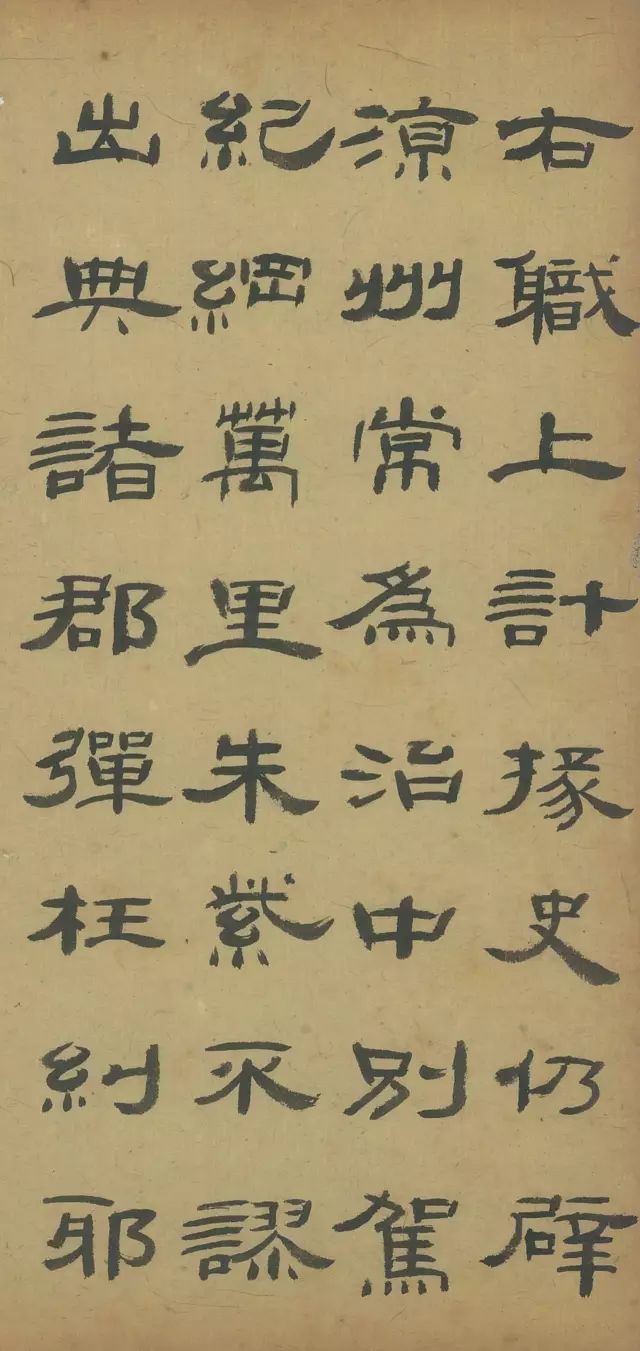 右職上計掾史仍辟
涼州常為治中別駕
紀綱萬里朱紫不謬
出典諸郡彈枉糾邪